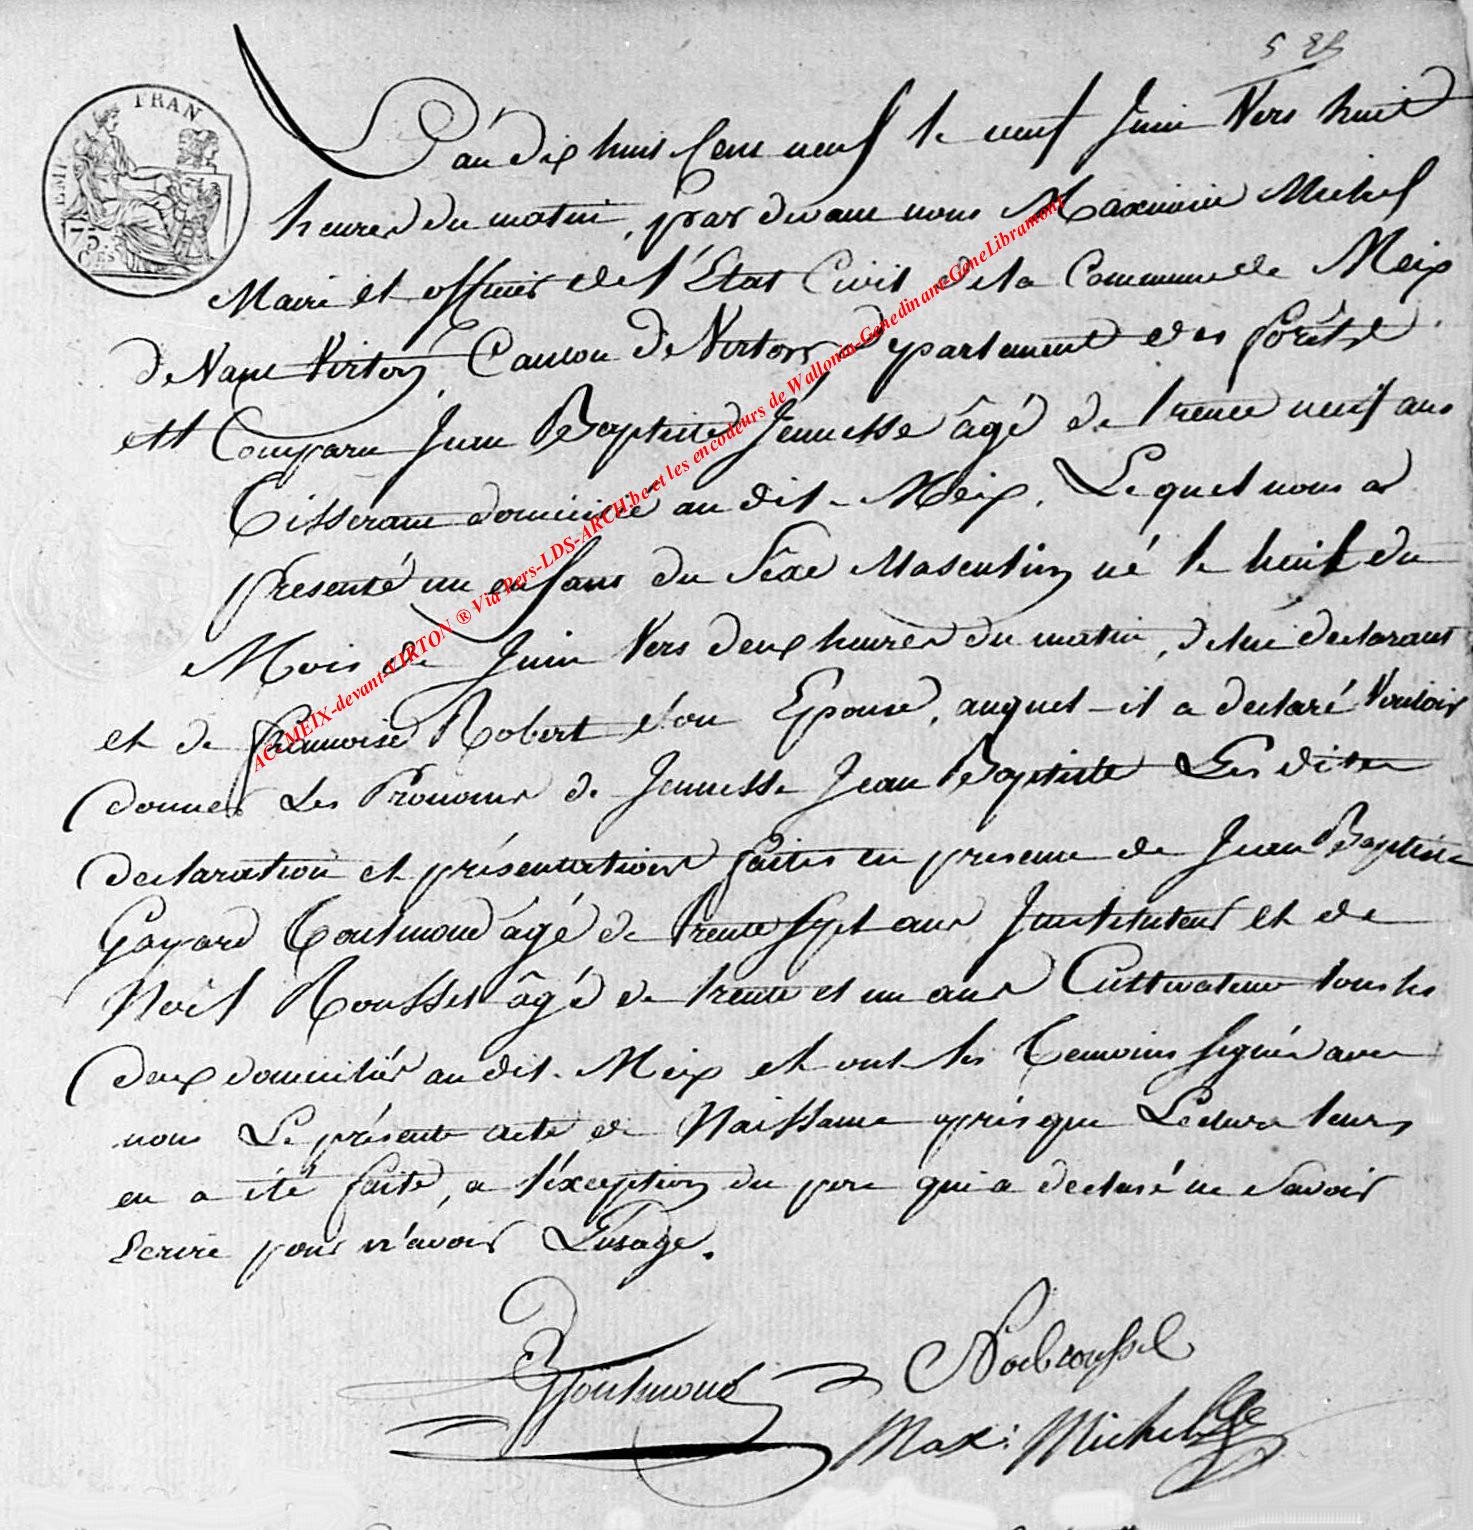 5
EMP. FRAN
75.
C.ES
L'an dix huit Cent neuf le neuf Juin Vers huit
heures du matin, par devant nous Maximin Michel
Maire et officier de l'Etat Civil de la Commune de Meix
devant Virton, Canton de Virton Departement des forêts
est Comparu Jean Baptiste Jeunesse âgé de trente neuf ans
Tisserant domicilié au dit Meix. Lequel nous a
presenté un enfant du Sexe Masculin né le huit du
Mois de Juin Vers deux heures du matin, de lui declarant
et de françoise Robert son Epouse, auquel il a declaré Vouloir
donner Les Prenoms de Jeunesse Jean Baptiste Les dites
declaration et présentation faites en presence de Jean Baptiste
Goyard Toulmond âgé de trente sept ans Jnstituteur et de
Noël Roussel âgé de trente et un ans Cultivateur tous les
deux domiciliés au dit Meix et ont les Temoins signés avec
nous Le présent acte de Naissance après que Lecture leurs
en a été faite, a l'éxception du pere qui a declaré ne Savoir
Ecrire pour n'avoir L'usage.
Toulmond Noel roussel
Max: Michel
AC-MEIX-devant-VIRTON ® Via Pers-LDS-ARCH.be et les encodeurs de Wallonia-Genedinant-GeneLibramont